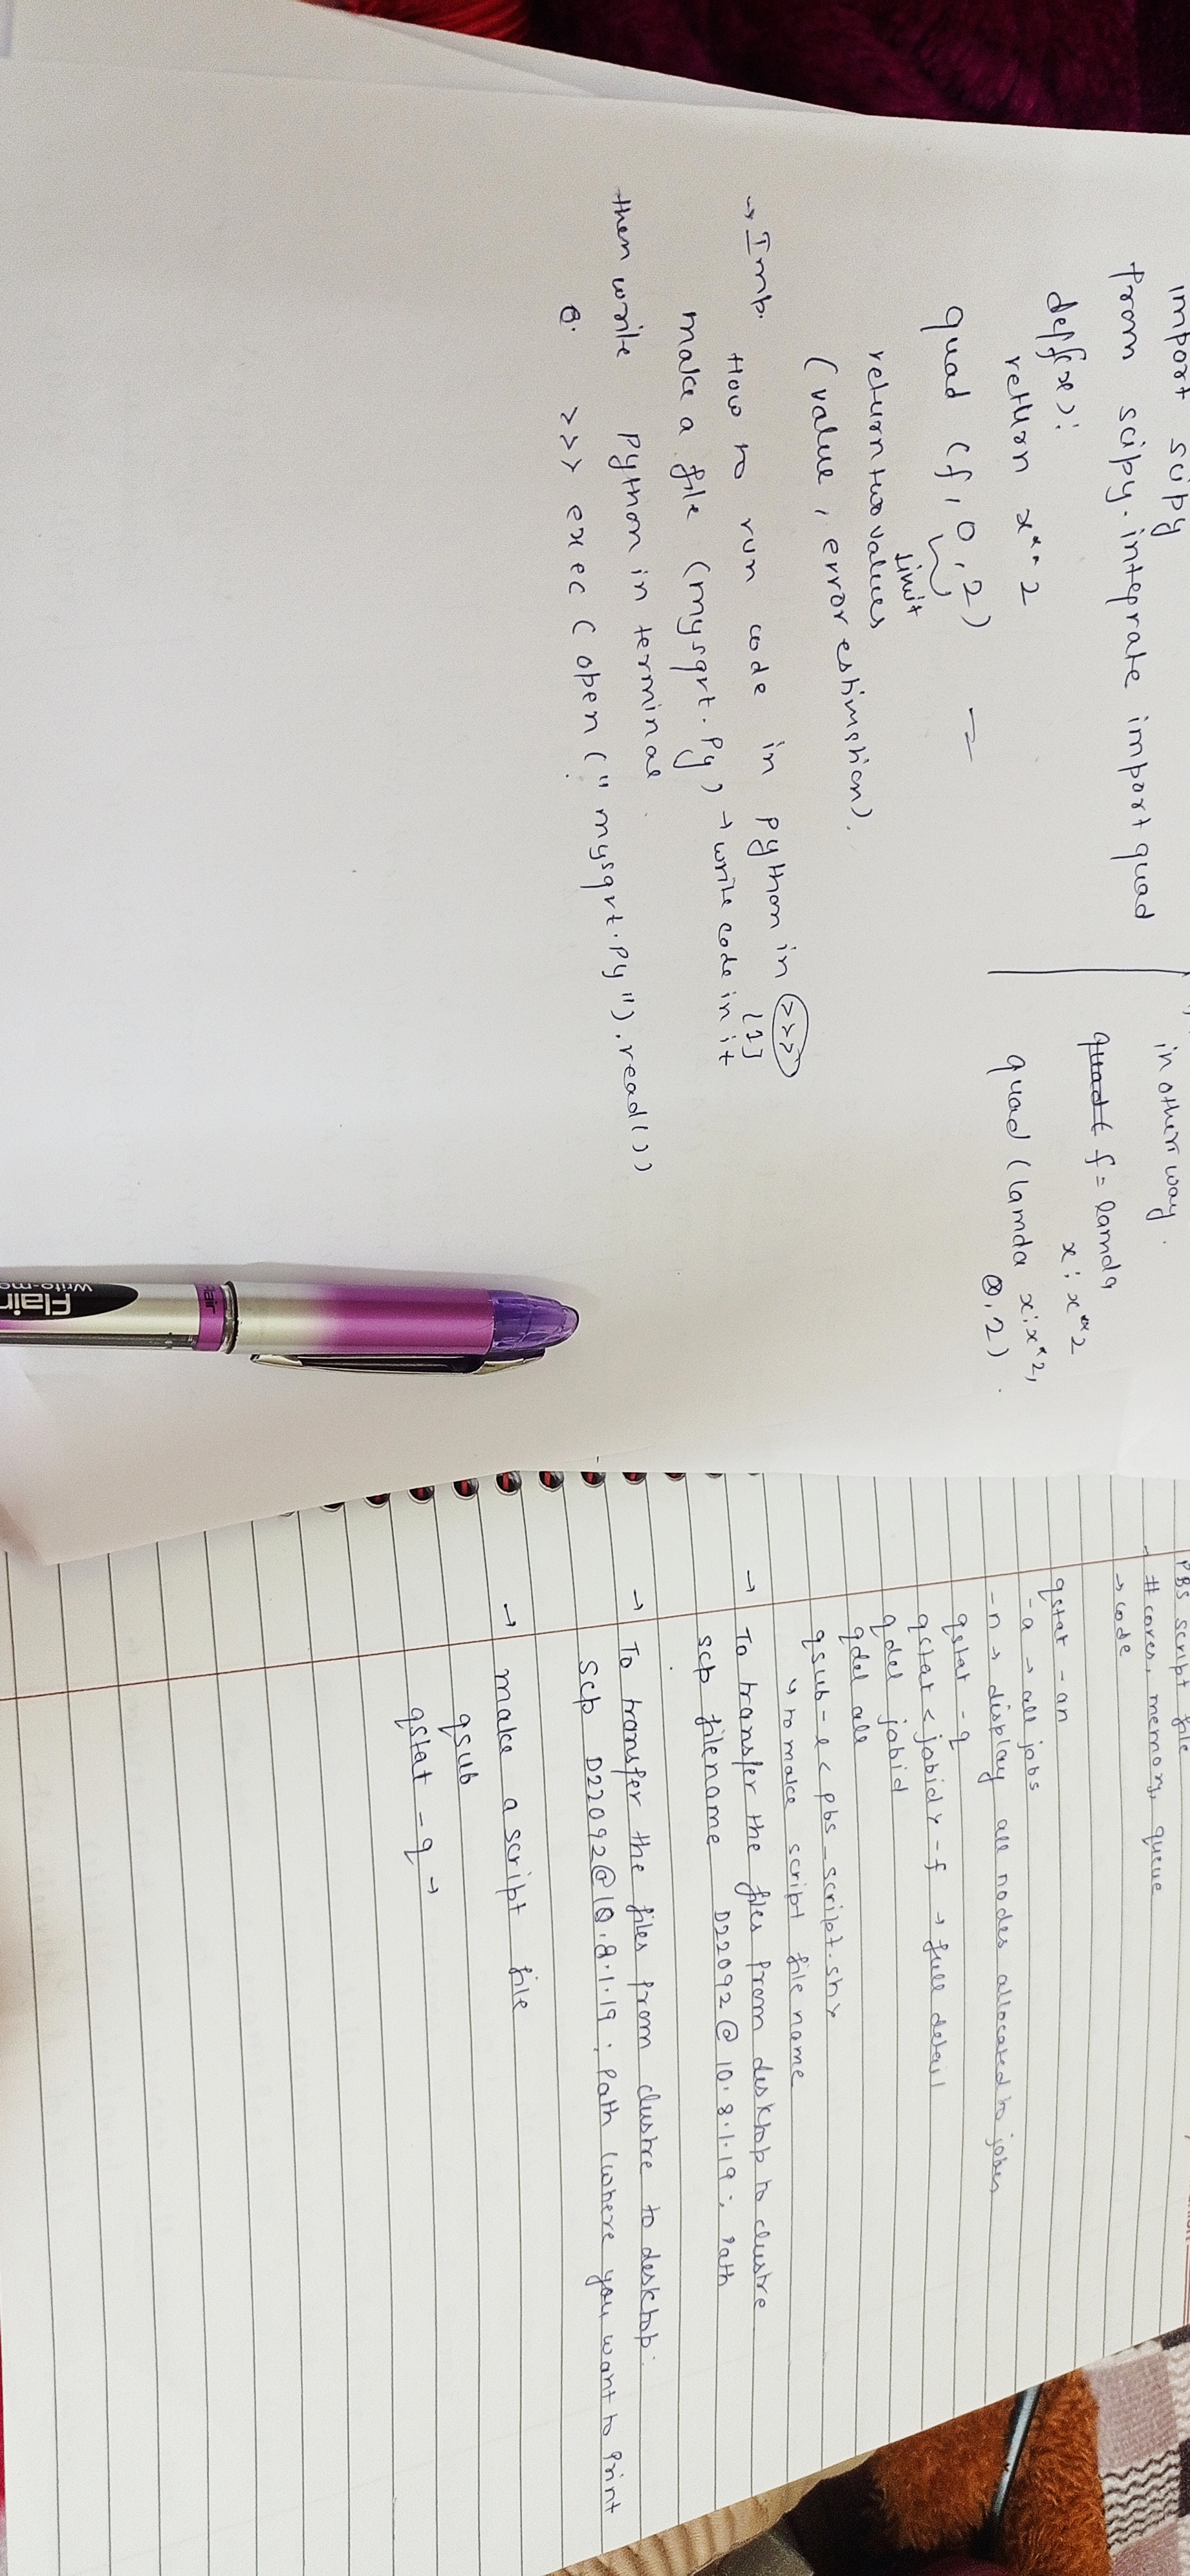 import scipy
from scipy.integrate import quad
def f(x):
return x**2
quad (f, 0, 2) =
limit
return two values
(value, error estimation).
in other way.
quad( f = lamda
x : x**2
quad (lamda x : x**2,
0, 2)
→ Imp. How to run code in python in >>>
[1]
make a file (mysqrt.py) → write code in it
then write python in terminal.
>>> exec (open ("mysqrt.py").read())
Flair
Flair
PBS script file
# cores, memory, queue
→ code
qstat -an
-a → all jobs
-n → display all nodes allocated to jobes
qstat -q
qstat <jobid> -f → full detail
qdel jobid
qdel all
qsub - l < pbs_script.sh>
↳ to make script file name
→ To transfer the files from desktop to clustre
scp filename D22092@10.8.1.19 : Path
→ To transfer the files from clustre to desktop.
scp D22092@10.8.1.19 : Path (where you want to print
→ make a script file
qsub
qstat -q →